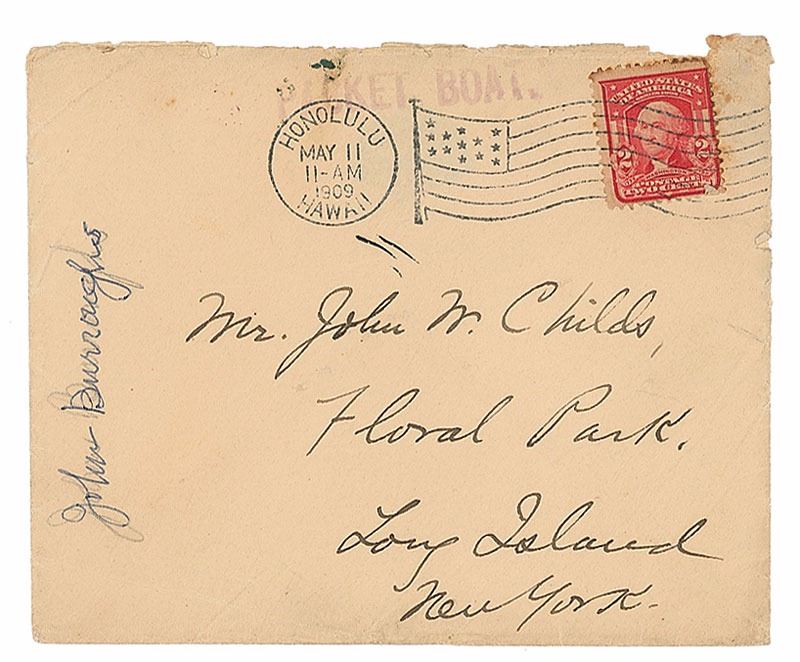 PACKET BOAT.
HONOLULU
MAY 11
11-AM
1909
HAWAII
UNITED STATES
OF AMERICA
2 2
WASHINGTON
TWO CENTS
John Burroughs
Mr. John W. Childs,
Floral Park,
Long Island
New York.